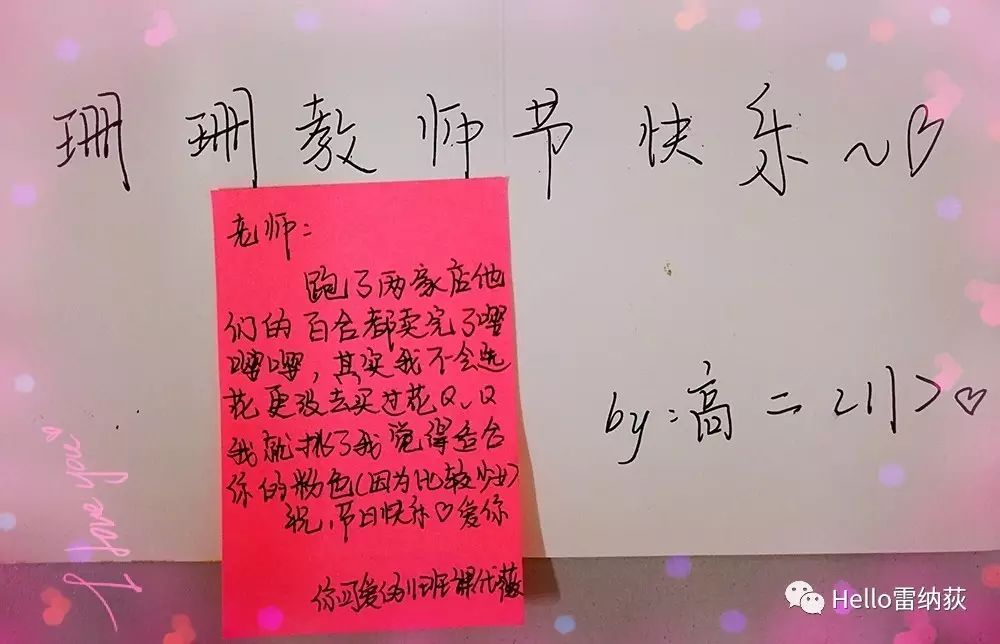 珊珊教师节快乐~♡
老师：
跑了两家店他
们的百合都卖完了嘤
嘤嘤，其实我不会选
花更没去买过花Q、Q
我就挑了我觉得适合
你的粉色(因为比较少女)
祝，节日快乐♡爱你
你可爱的11班课代薇
by：高二<11>♡
I love you♡
Hello雷纳荻